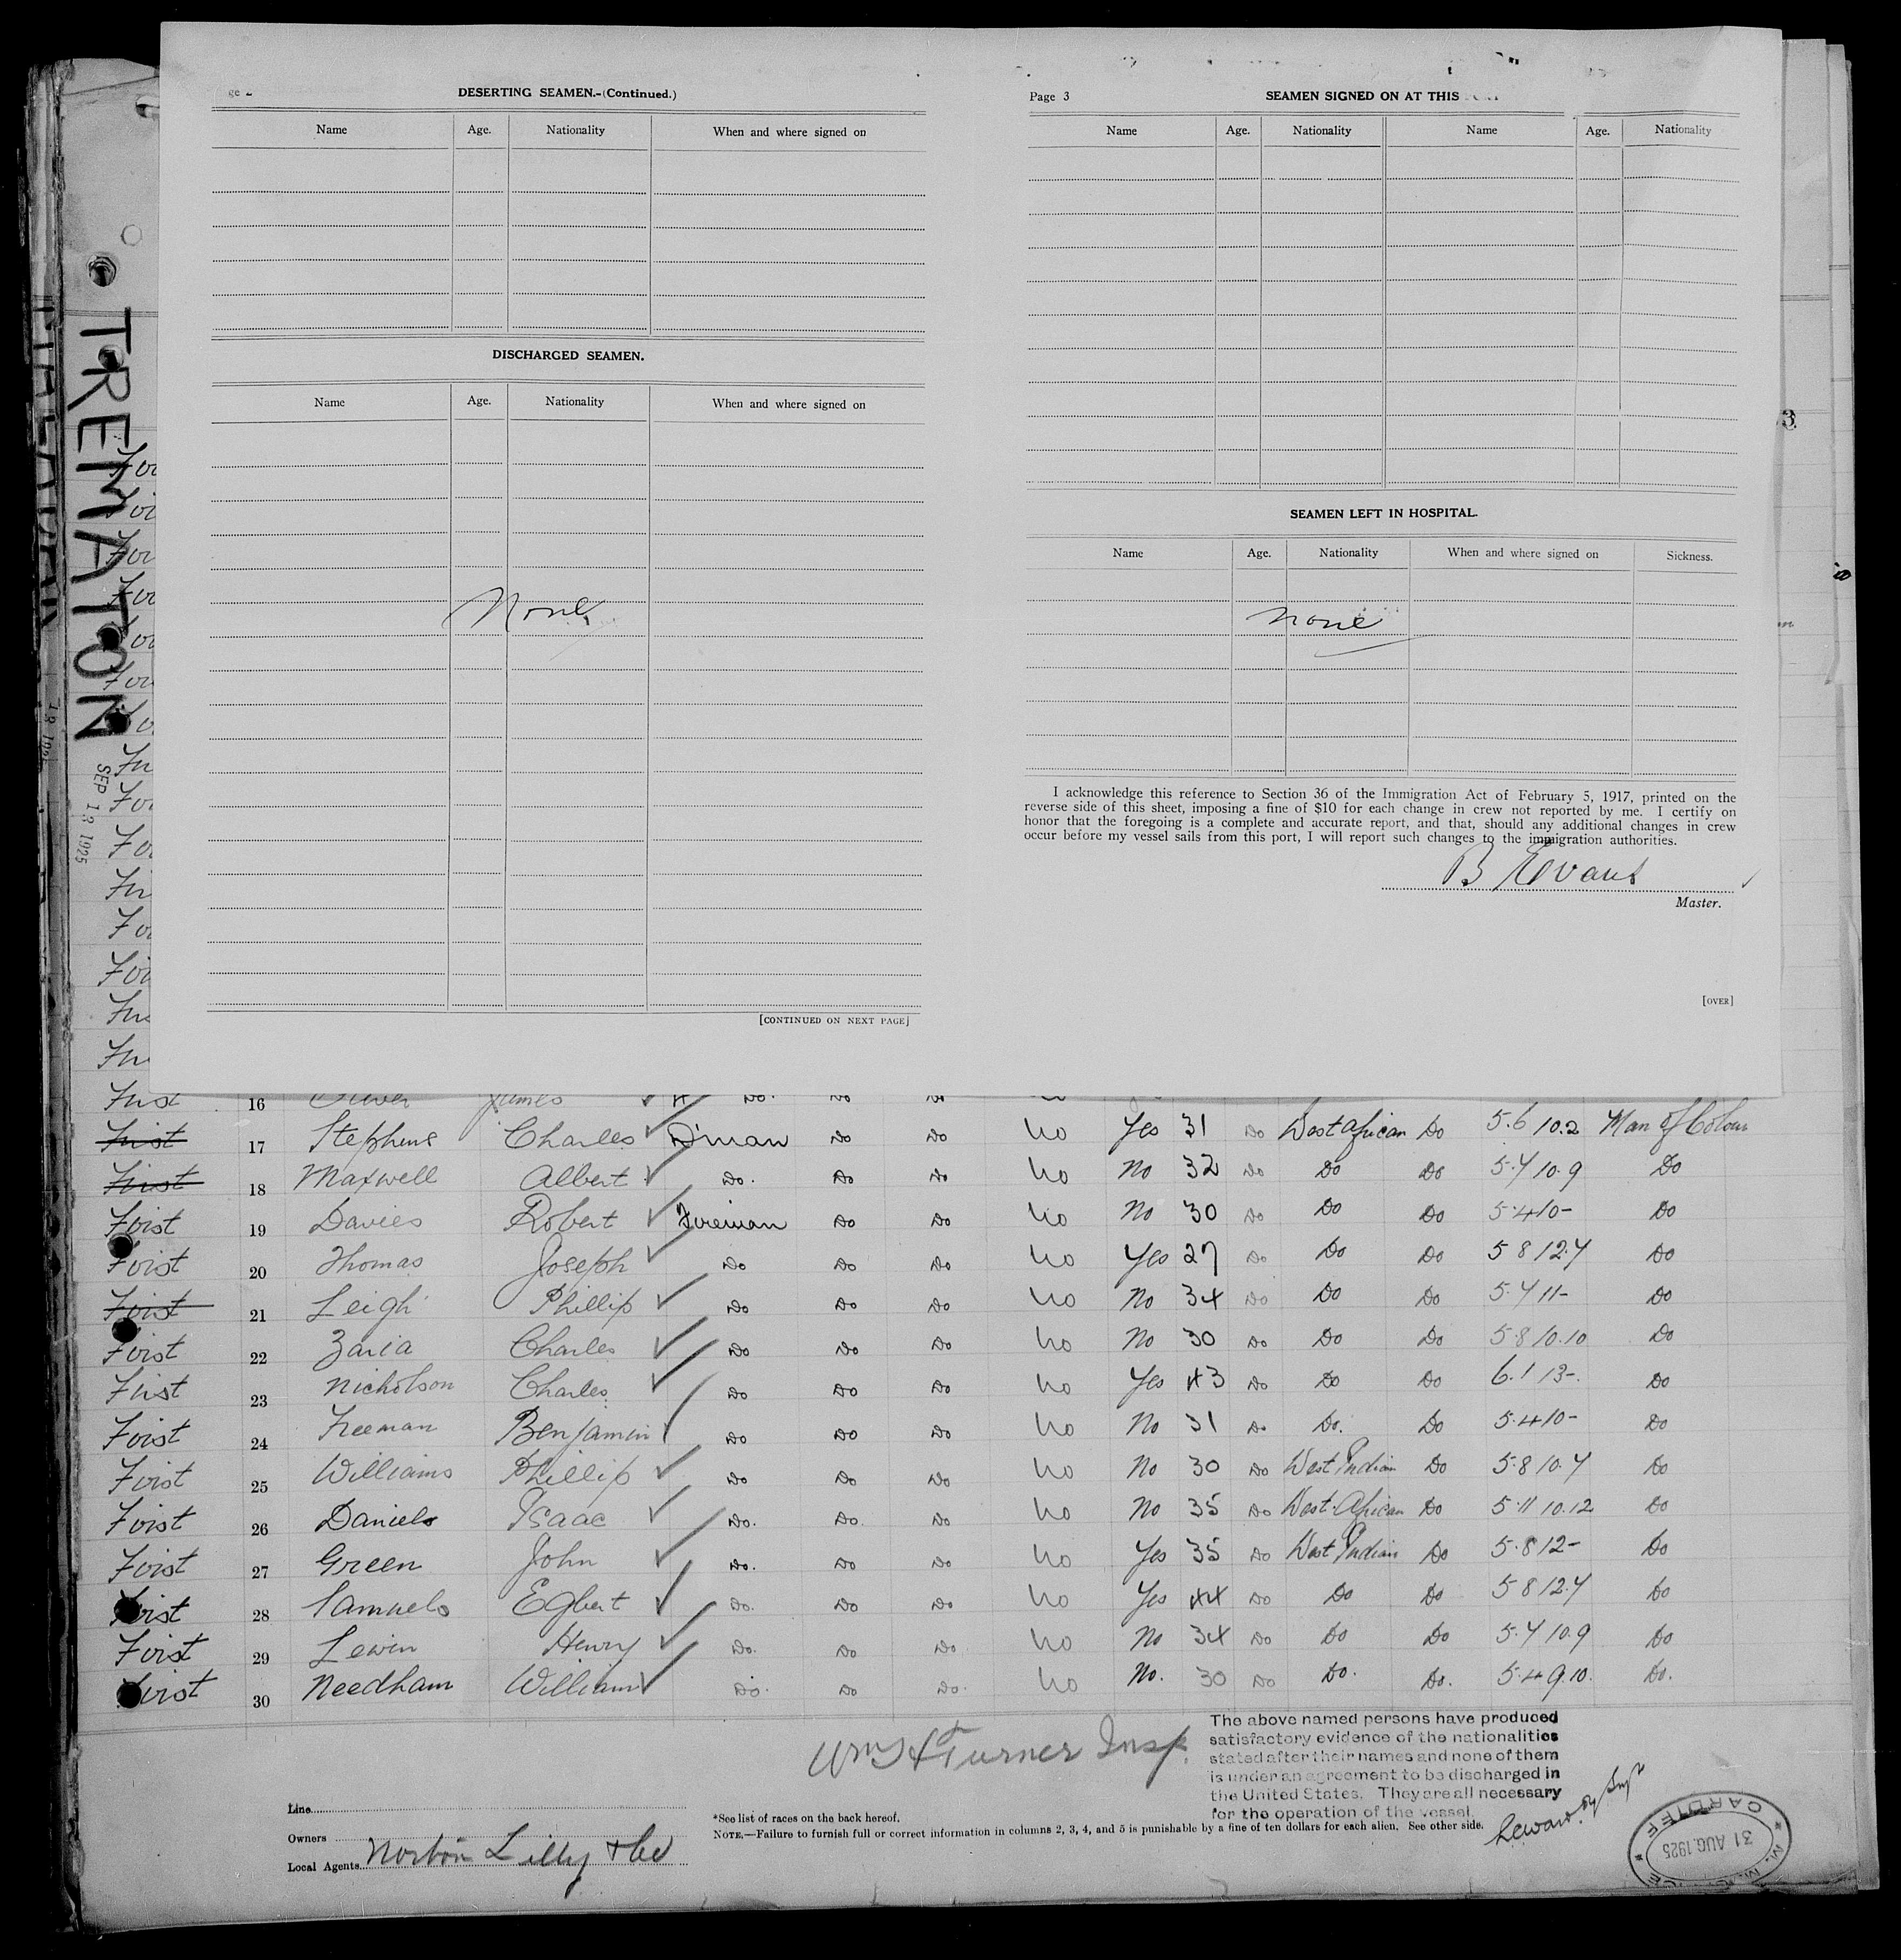 DESERTING SEAMEN.-(Continued.)
Name Age. Nationality When and where signed on
DISCHARGED SEAMEN.
Name Age. Nationality When and where signed on
None
[CONTINUED ON NEXT PAGE]
Page 3 SEAMEN SIGNED ON AT THIS
Name Age. Nationality Name Age. Nationality
SEAMEN LEFT IN HOSPITAL.
Name Age. Nationality When and where signed on Sickness.
None
I acknowledge this reference to Section 36 of the Immigration Act of February 5, 1917, printed on the
reverse side of this sheet, imposing a fine of $10 for each change in crew not reported by me. I certify on
honor that the foregoing is a complete and accurate report, and that, should any additional changes in crew
occur before my vessel sails from this port, I will report such changes to the immigration authorities.
B Evans
Master.
[OVER]
TREMATON
SEP 13 1925
3.
16 Oliver James Do. Do Do
17 Stephens Charles D'man Do Do No Yes 31 Do West African Do 5.6 10.2 Man of Colour
18 Maxwell Albert Do. Do Do No No 32 Do Do Do 5.7 10.9 Do
First 19 Davies Robert Fireman Do Do No No 30 Do Do Do 5.4 10- Do
First 20 Thomas Joseph Do Do Do No Yes 27 Do Do Do 5 8 12.7 Do
First 21 Leigh Phillip Do Do Do No No 34 Do Do Do 5.7 11- Do
First 22 Zaria Charles Do Do Do No No 30 Do Do Do 5.8 10.10 Do
First 23 Nicholson Charles Do Do Do No Yes 43 Do Do Do 6.1 13-. Do
First 24 Freeman Benjamin Do Do Do No No 31 Do Do. Do 5.4 10- Do
First 25 Williams Phillip Do Do Do No No 30 Do West Indian Do 5.8 10.7 Do
First 26 Daniels Isaac Do. Do. Do No No 35 Do West African Do 5.11 10.12 Do
First 27 Green John Do. Do Do No Yes 35 Do West Indian Do 5.8 12- Do
First 28 Samuels Egbert Do. Do Do No Yes 44 Do Do Do 5 8 12.7 Do
First 29 Lewin Henry Do. Do Do. No No 34 Do Do Do 5.7 10.9 Do
First 30 Needham William Do. Do Do. No No. 30 Do Do. Do. 5.4 9.10. Do.
Wm H Turner Insp.
The above named persons have produced
satisfactory evidence of the nationalities
stated after their names and none of them
is under an agreement to be discharged in
the United States. They are all necessary
for the operation of the vessel.
Line
Owners
Local Agents Norton Lilly & Co
*See list of races on the back hereof.
NOTE.—Failure to furnish full or correct information in columns 2, 3, 4, and 5 is punishable by a fine of ten dollars for each alien. See other side.
CARDIFF
31 AUG. 1925